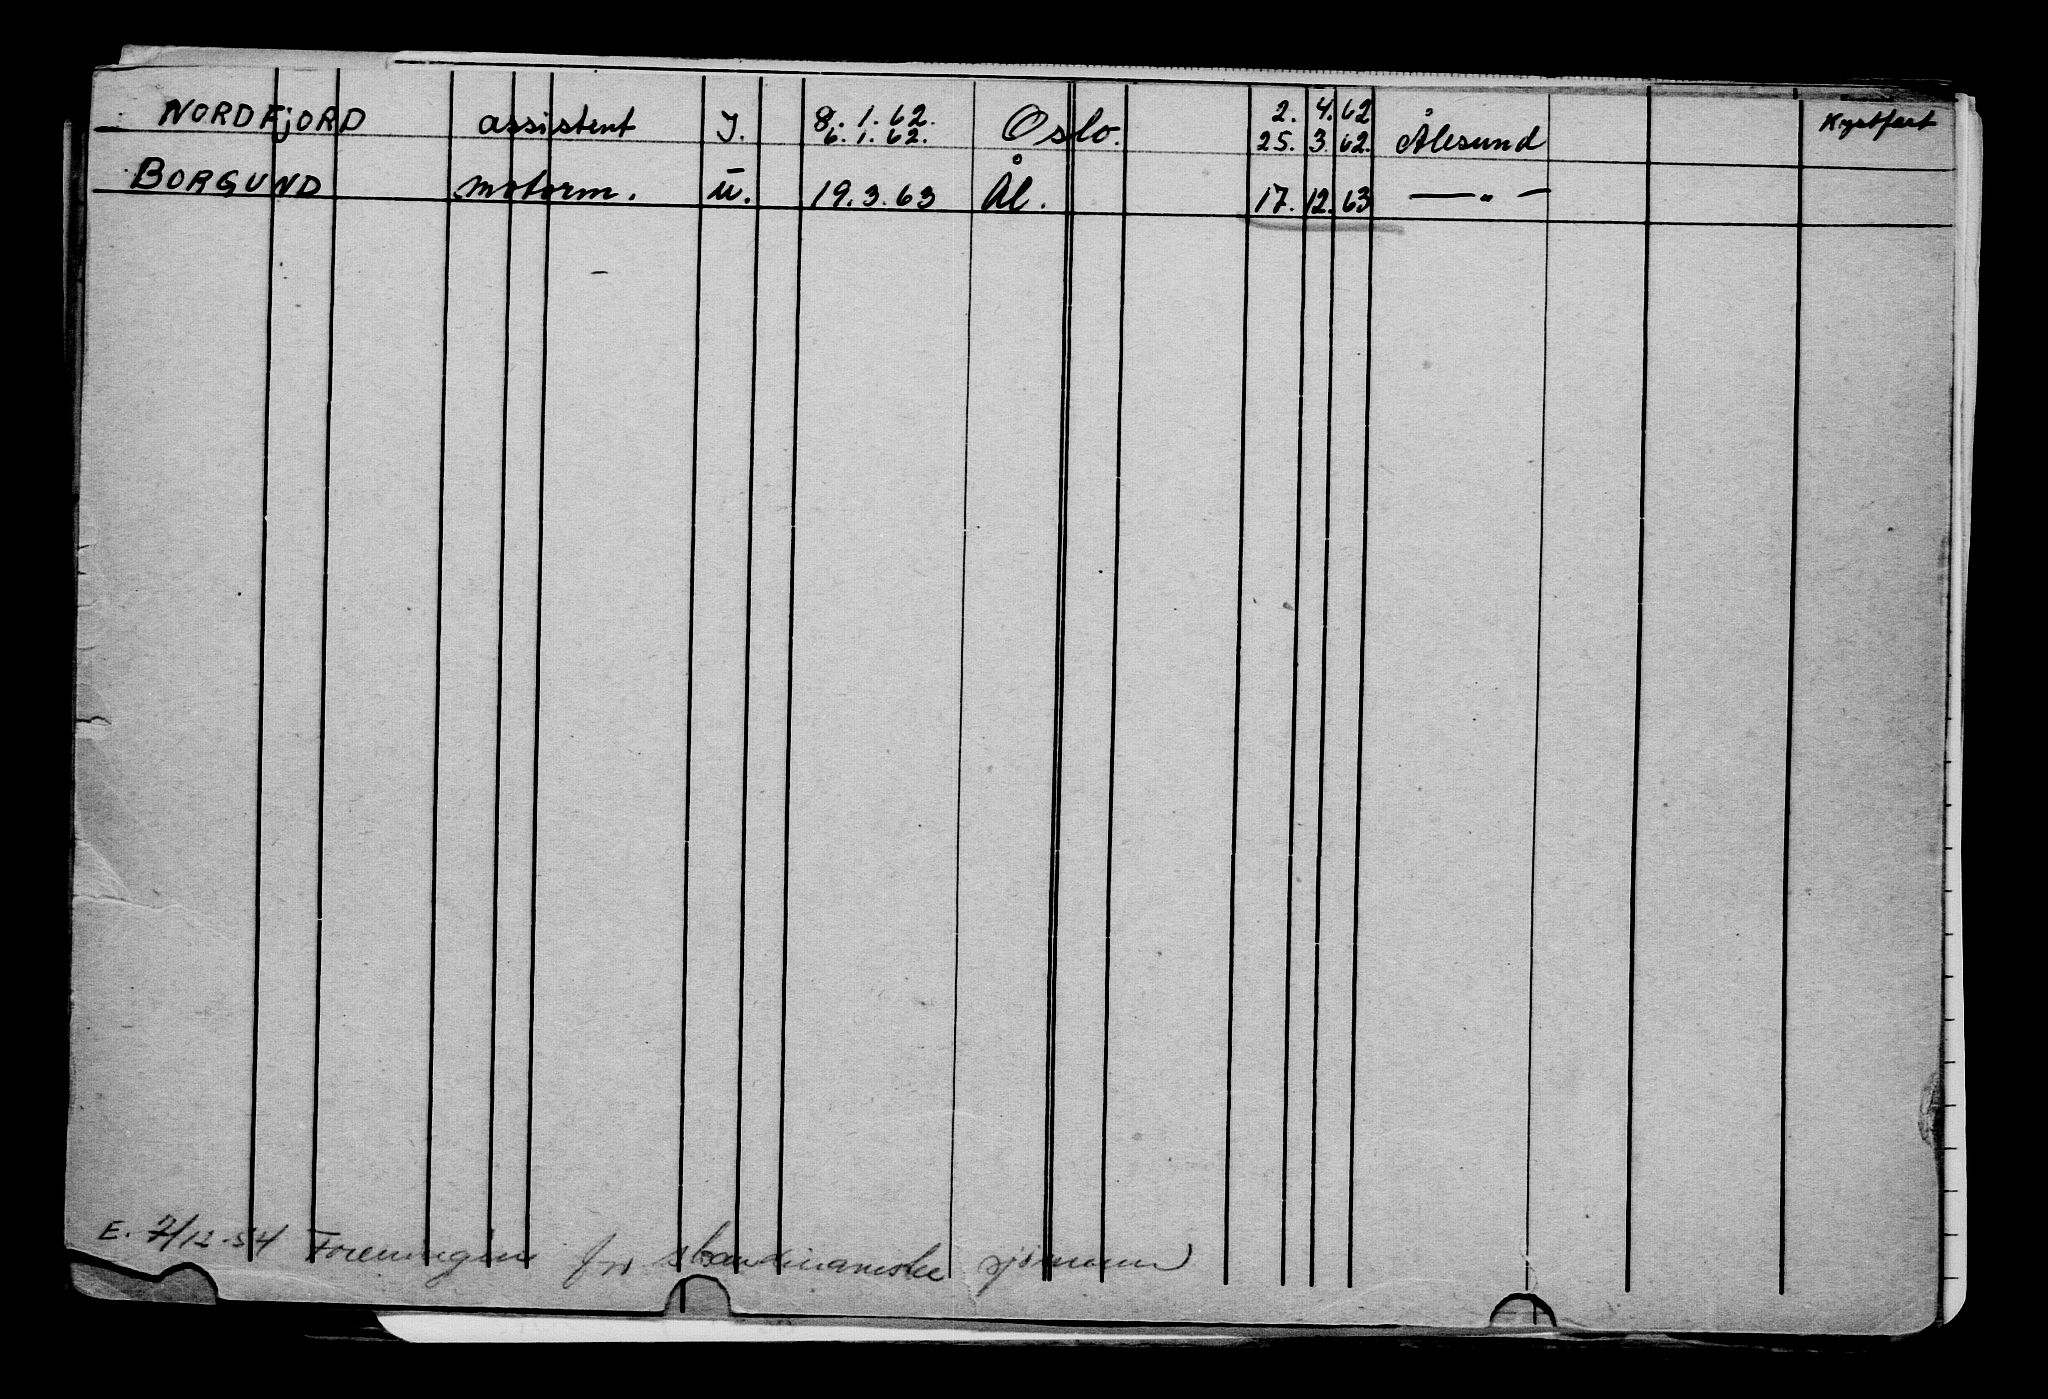 NORDFJORD assistent I. 8. 1. 62. Oslo. 2. 4. 62 Kystfart
6. 1. 62. 25. 3. 62. Ålesund
BORGUND motorm. u. 19. 3. 63 Ål. 17. 12. 63 — " —
E. 7/12-54 Foreningen for skandinaviske sjømenn